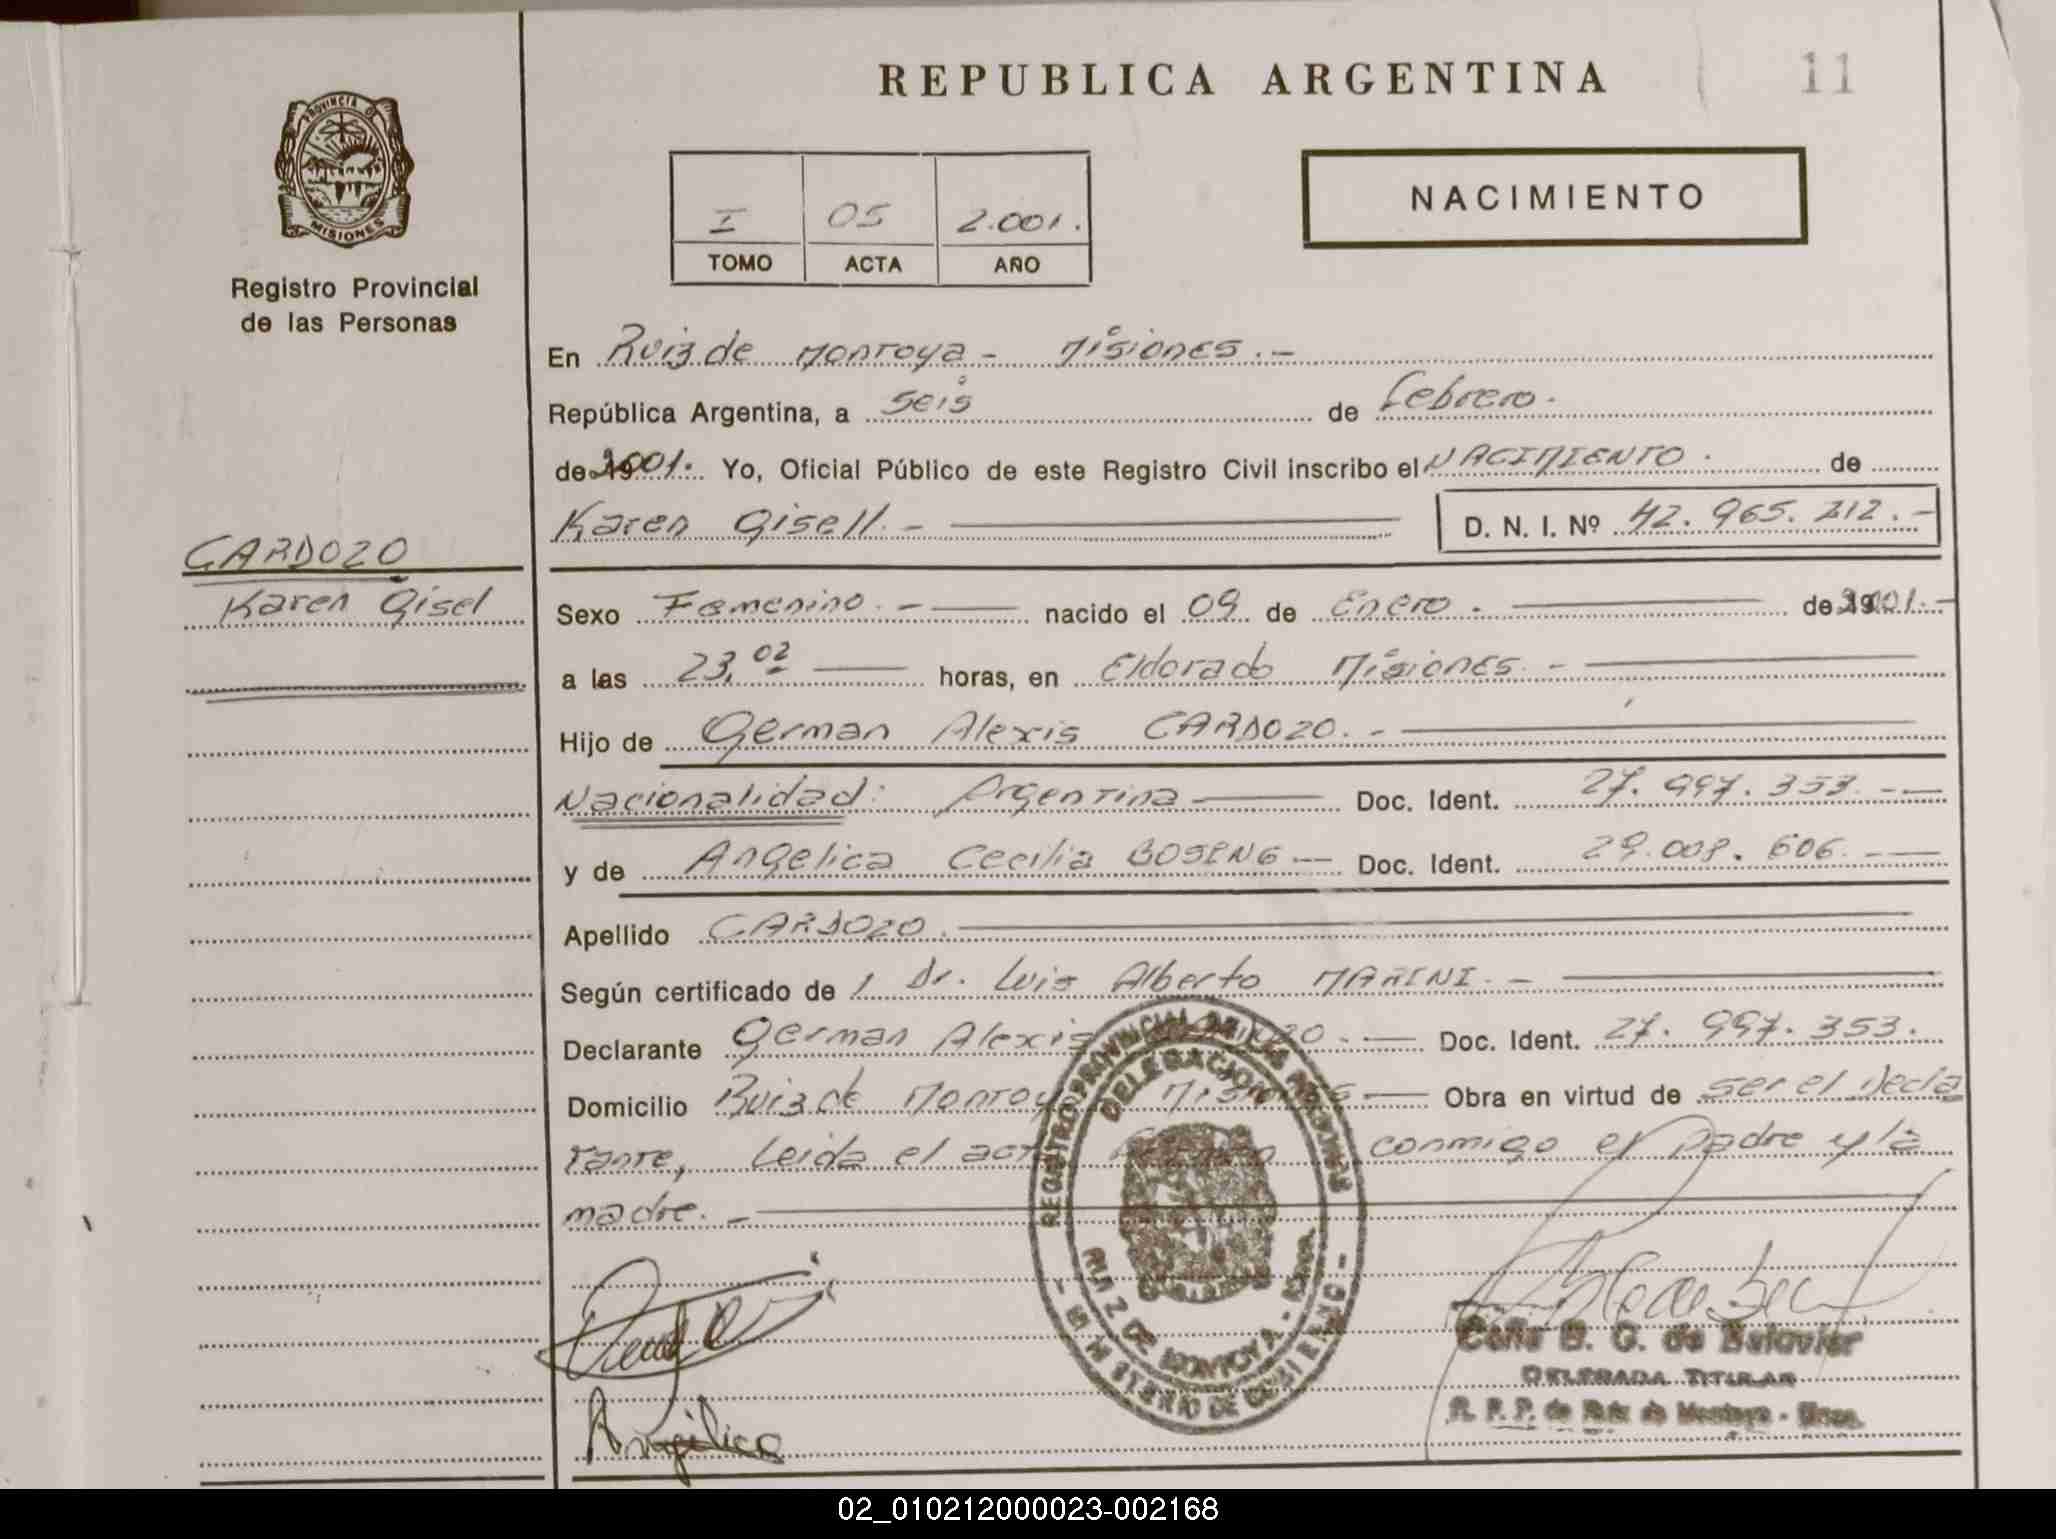 REPUBLICA ARGENTINA
11
PROVINCIA D
MISIONES
Registro Provincial
de las Personas
I 05 2.001.
TOMO ACTA AÑO
NACIMIENTO
En Ruiz de Montoya - Misiones.-
República Argentina, a seis de Febrero.
de 2001. Yo, Oficial Público de este Registro Civil inscribo el NACIMIENTO. de
Karen Gisell.- D. N. I. Nº 42.965.212.-
CARDOZO
Karen Gisel
Sexo Femenino.- nacido el 09 de Enero. de 2001.-
a las 23,02 horas, en Eldorado Misiones.-
Hijo de German Alexis CARDOZO.-
Nacionalidad: Argentina Doc. Ident. 27.997.353.-
y de Angelica Cecilia Doc. Ident. 29.008.606.-
Apellido CARDOZO.
Según certificado de Dr. Luis Alberto MARINI.-
Declarante German Alexis Doc. Ident. 27.997.353.
Domicilio Ruiz de Montoya Misiones Obra en virtud de ser el Decla
rante, Leida el acta conmigo el padre y la
madre.-
REGISTRO PROVINCIAL DE LAS PERSONAS
DELEGACION
RUIZ DE MONTOYA - MISIONES
- MINISTERIO DE GOBIERNO -
Angelica
DELEGADA TITULAR
R. P. P. de Ruiz de Montoya - Mnes.
02_010212000023-002168